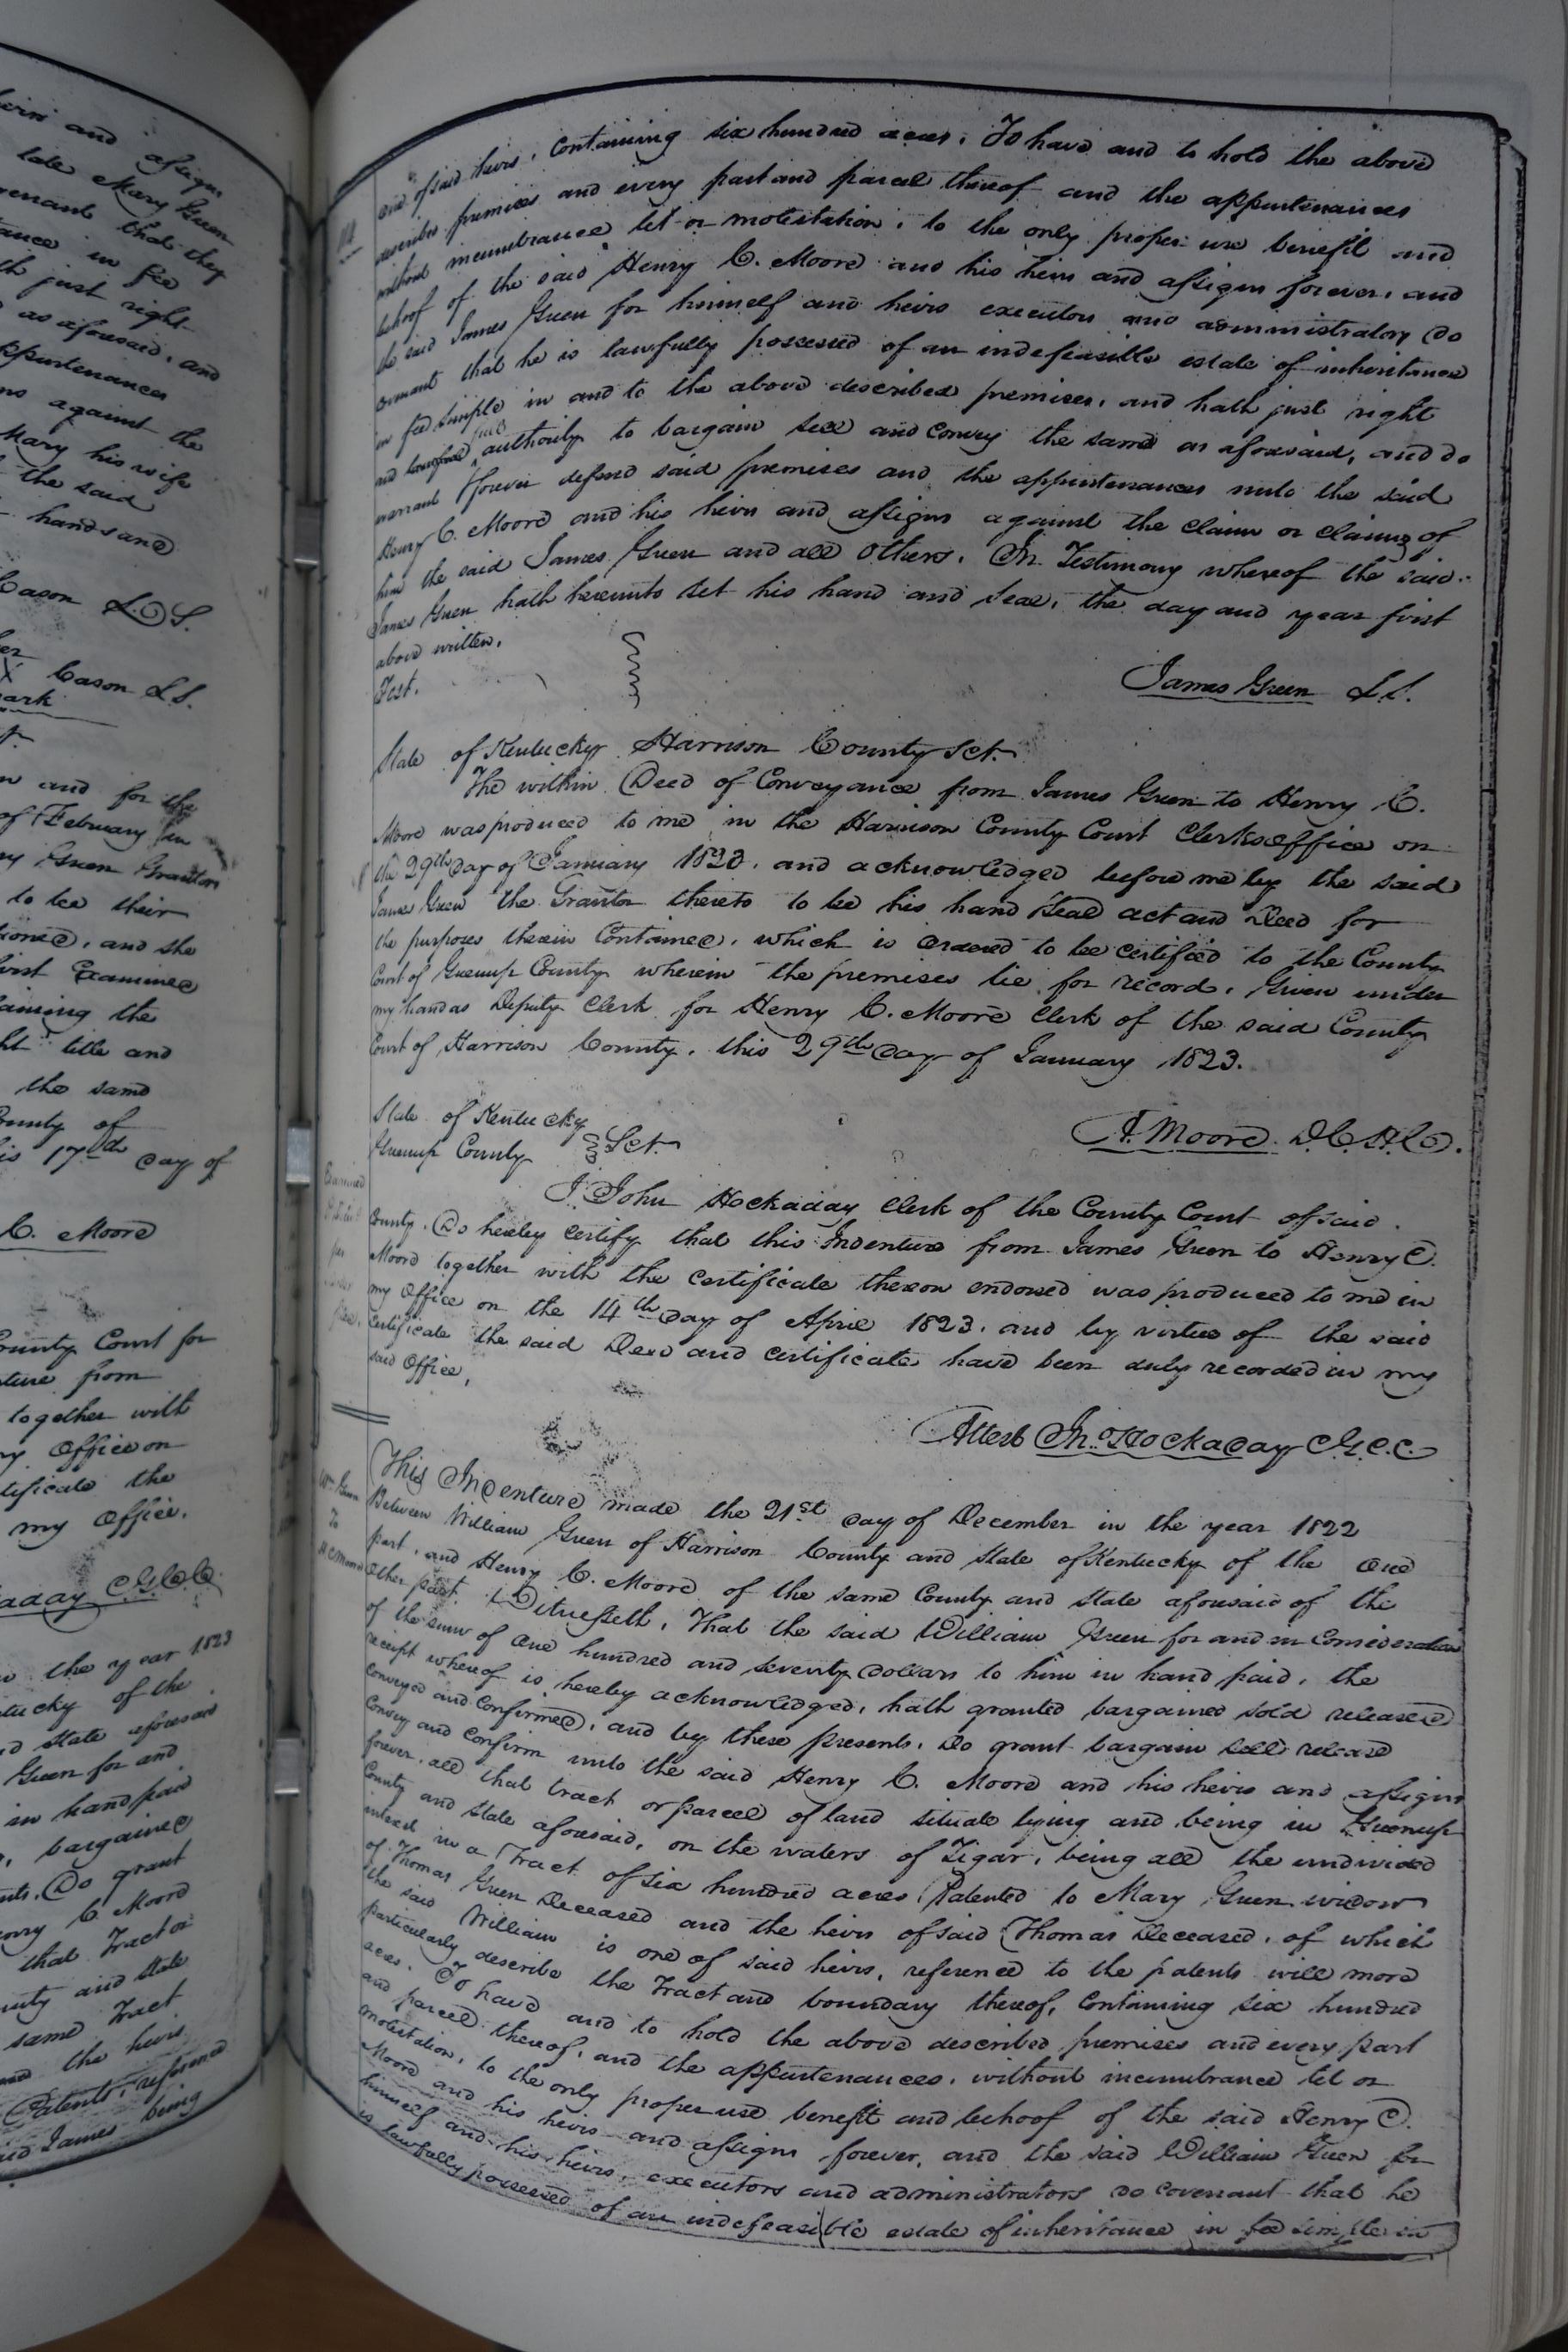 heirs and assigns
late Mary Green
covenant that they
in fee
just right
as aforesaid, and
appurtenances
against the
Mary his wife
the said
hands and
Cason L.S.
X Cason L.S.
mark
and for the
of February in
Green Grantors
to be their
and she
first Examined
the
title and
the same
County of
17th day of
C. Moore
County Court for
from
together with
my Office on
the
my Office.
C.G.C.C.
the year 1823
of the
State aforesaid
Green for and
in hand paid
bargained
Do grant
Henry C. Moore
that Tract or
and State
same Tract
and the heirs
Patents, reference
said James being
one of said heirs, containing six hundred acres. To have and to hold the above
described premises and every part and parcel thereof and the appurtenances
without incumbrance let or molestation, to the only proper use benefit and
behoof of the said Henry C. Moore and his heirs and assigns forever, and
the said James Green for himself and heirs executors and administrators do
covenant that he is lawfully possessed of an indefeasible estate of inheritance
in fee simple in and to the above described premises, and hath just right
and lawful full authority to bargain sell and convey the same as aforesaid, and do
warrant & forever defend said premises and the appurtenances unto the said
Henry C. Moore and his heirs and assigns against the claim or claims of
him the said James Green and all others. In Testimony whereof the said
James Green hath hereunto set his hand and seal, the day and year first
above written.
Test.
James Green L.S.
State of Kentucky Harrison County Sct.
The within Deed of Conveyance from James Green to Henry C.
Moore was produced to me in the Harrison County Court Clerks office on
the 29th day of January 1823. and acknowledged before me by the said
James Green the Grantor thereto to be his hand Seal act and Deed for
the purposes therein Contained, which is ordered to be certified to the County
Court of Greenup County wherein the premises lie for record. Given under
my hand as Deputy Clerk for Henry C. Moore Clerk of the said County
Court of Harrison County, this 29th day of January 1823.
A. Moore D.C.H.C.
State of Kentucky
Greenup County Sct.
I John Hockaday Clerk of the County Court of said
County, Do hereby certify that this Indenture from James Green to Henry C.
Moore together with the certificate thereon endorsed was produced to me in
my Office on the 14th day of April 1823. and by virtue of the said
Certificate the said Deed and certificate have been duly recorded in my
said Office,
Attest Jno. Hockaday C.G.C.C.
Wm Green
To
H C Moore
This Indenture made the 21st day of December in the year 1822
Between William Green of Harrison County and State of Kentucky of the one
part, and Henry C. Moore of the same County and State aforesaid of the
Other part. Witnesseth, That the said William Green for and in Consideration
of the sum of One hundred and seventy Dollars to him in hand paid, the
receipt whereof is hereby acknowledged, hath granted bargained sold released
Conveyed and Confirmed, and by these presents, Do grant bargain sell release
Convey and Confirm unto the said Henry C. Moore and his heirs and assigns
forever, all that tract or parcel of land situate lying and being in Greenup
County and State aforesaid, on the waters of Tigar, being all the undivided
interest in a Tract of six hundred acres Patented to Mary Green widow
of Thomas Green Deceased and the heirs of said Thomas Deceased, of which
the said William is one of said heirs, reference to the patents will more
particularly describe the Tract and boundary thereof, Containing six hundred
acres. To have and to hold the above described premises and every part
and parcel thereof, and the appurtenances, without incumbrance let or
molestation, to the only proper use benefit and behoof of the said Henry C.
Moore and his heirs and assigns forever, and the said William Green for
himself and his heirs, executors and administrators do covenant that he
is lawfully possessed of an indefeasible estate of inheritance in fee simple in